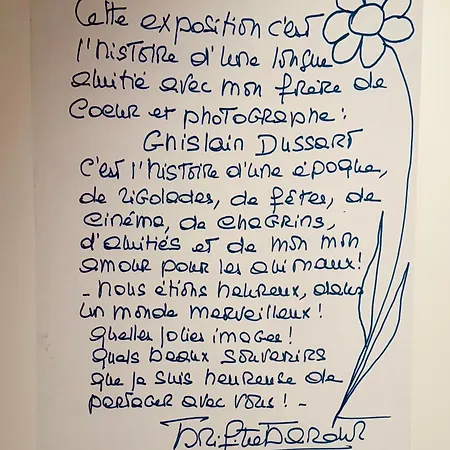 Cette exposition c'est
l'histoire d'une longue
amitié avec mon frère de
coeur et photographe :
Ghislain Dussart
C'est l'histoire d'une époque,
de rigolades, de fêtes, de
cinéma, de chagrins,
d'amitiés et de mon mon
amour pour les animaux !
- Nous étions heureux, dans
un monde merveilleux !
Quelles jolies images !
Quels beaux souvenirs
que je suis heureuse de
partager avec vous ! -
Brigitte Bardot